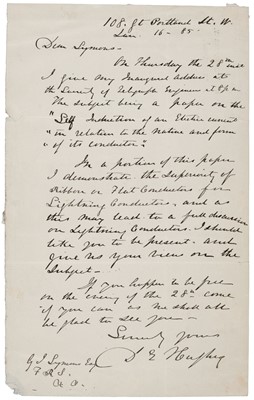 108. Gt Portland St. W.
Jan. 16 - 85 -
Dear Symons -
On Thursday the 28th inst
I give my Inaugural address into
the Society of Telegraph Engineers at 8 p.m.
The subject being a paper on the
"Self Induction of an Electric current
"in relation to the nature and form
"of its conductor".
In a portion of this paper
I demonstrate the Superiority of
Ribbon or Flat Conductors for
Lightning Conductors, and as
this may lead to a full discussion
on Lightning Conductors I should
like you to be present and
give us your views on the
Subject -
If you happen to be free
on the evening of the 28th come
if you can as we shall all
be glad to see you -
Sincerely Yours
D E Hughes
G J Symons Esq
F R S.